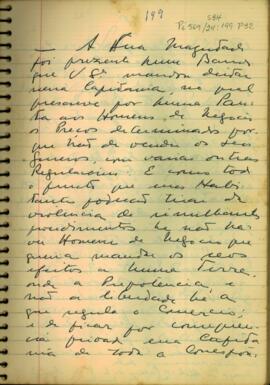 199
— A Sua Magestade
foi prezente hum Bando
que V Sª mandou deitar
nessa Capitania, no qual
prescreve por huma Pau
ta aos Homens de Negocio
os Preços determinados por
que hão de vender os seus
generos, com varias outras
Regulações. E como todo
o fructo que esses Habi
tantes poderão tirar da
violencia de similhantes
procedimentos he não ha
ver Homem de Negocio que
queira mandar os seus
effeitos a huma Terra,
onde a Prepotencia, e
não a liberdade he a
que regula o Comercio;
e de ficar por consequen
cia privada essa Capita
nia de toda a Correspon